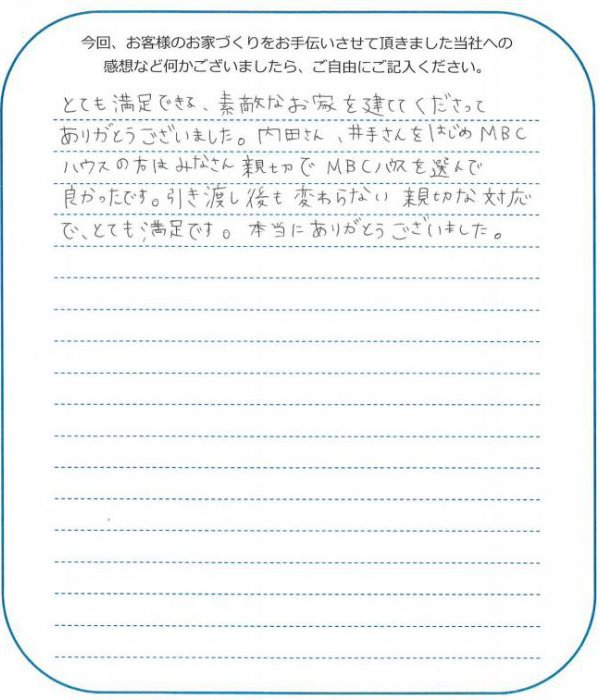 今回、お客様のお家づくりをお手伝いさせて頂きました当社への
感想など何かございましたら、ご自由にご記入ください。
とても満足できる、素敵なお家を建ててくださって
ありがとうございました。内田さん、井手さんをはじめMBC
ハウスの方はみなさん親切でMBCハウスを選んで
良かったです。引き渡し後も変わらない親切な対応
で、とても満足です。本当にありがとうございました。